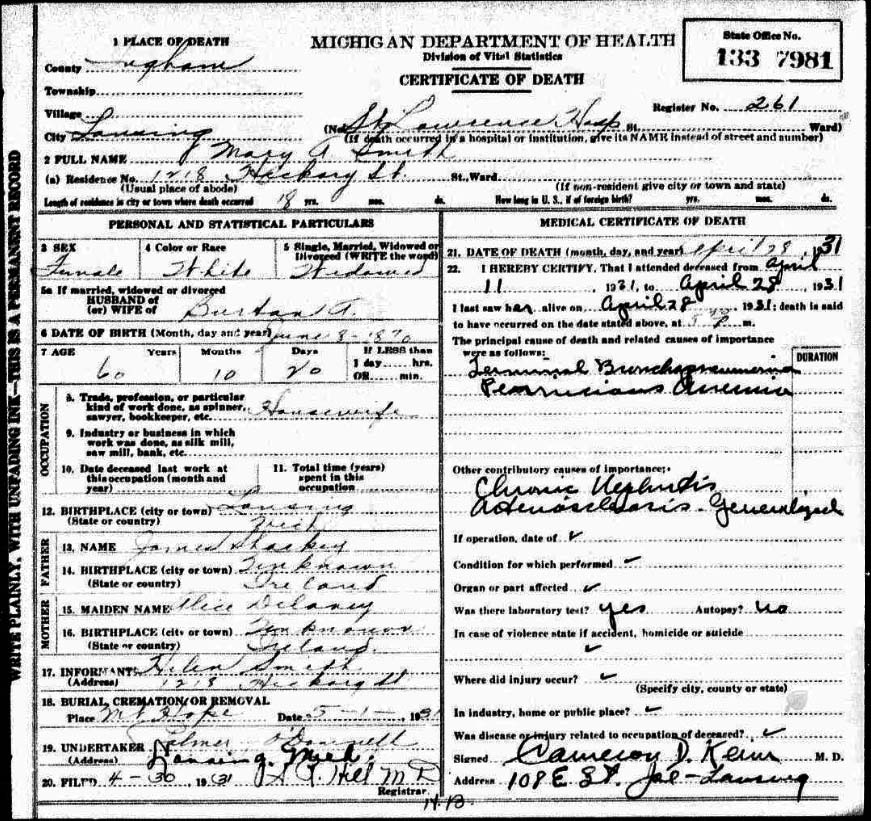 1 PLACE OF DEATH
MICHIGAN DEPARTMENT OF HEALTH
Division of Vital Statistics
CERTIFICATE OF DEATH
State Office No.
133 7981
County Ingham
Township
Register No. 261
Village
City Lansing (No. St Lawrence Hosp St. Ward)
(If death occurred in a hospital or institution, give its NAME instead of street and number)
2 FULL NAME Mary A Smith
(a) Residence No. 1218 Hickory St. St., Ward.
(Usual place of abode) (If non-resident give city or town and state)
Length of residence in city or town where death occurred 18 yrs. mos. ds. How long in U. S., if of foreign birth? yrs. mos. ds.
PERSONAL AND STATISTICAL PARTICULARS
3 SEX Female
4 Color or Race White
5 Single, Married, Widowed or Divorced (WRITE the word) Widowed
5a If married, widowed or divorced
HUSBAND of
(or) WIFE of Burton A.
6 DATE OF BIRTH (Month, day and year) June 8 - 1870
7 AGE Years Months Days If LESS than
1 day ...... hrs.
OR ...... min.
60 10 20
OCCUPATION
8. Trade, profession, or particular
kind of work done, as spinner,
sawyer, bookkeeper, etc. Housewife
9. Industry or business in which
work was done, as silk mill,
saw mill, bank, etc.
10. Date deceased last work at
this occupation (month and
year)
11. Total time (years)
spent in this
occupation
12. BIRTHPLACE (city or town) Lansing
(State or country) Mich
FATHER
13. NAME James
14. BIRTHPLACE (city or town) Unknown
(State or country) Ireland
MOTHER
15. MAIDEN NAME Alice Delaney
16. BIRTHPLACE (city or town) Unknown
(State or country) Ireland.
17. INFORMANT Helen Smith
(Address) 1218 Hickory St
18. BURIAL, CREMATION OR REMOVAL
Place Mt Hope Date 5-1- 1931
19. UNDERTAKER
(Address) Lansing, Mich.
20. FILED 4-30 1931 Hill M D
Registrar.
MEDICAL CERTIFICATE OF DEATH
21. DATE OF DEATH (month, day, and year) April 28, 1931
22. I HEREBY CERTIFY, That I attended deceased from April
11, 1931, to April 28, 1931
I last saw her alive on April 28 1931; death is said
to have occurred on the date stated above, at m.
The principal cause of death and related causes of importance
were as follows: DURATION
Terminal Bronchopneumonia
Pernicious Anemia
Other contributory causes of importance:
Chronic Nephritis
Arteriosclerosis - Generalized
If operation, date of ✓
Condition for which performed ✓
Organ or part affected ✓
Was there laboratory test? yes Autopsy? no
In case of violence state if accident, homicide or suicide
✓
Where did injury occur? ✓
(Specify city, county or state)
In industry, home or public place? ✓
Was disease or injury related to occupation of deceased? ✓
Signed Cameron D. M. D.
Address 108 E St. Jos - Lansing
WRITE PLAINLY, WITH UNFADING INK—THIS IS A PERMANENT RECORD